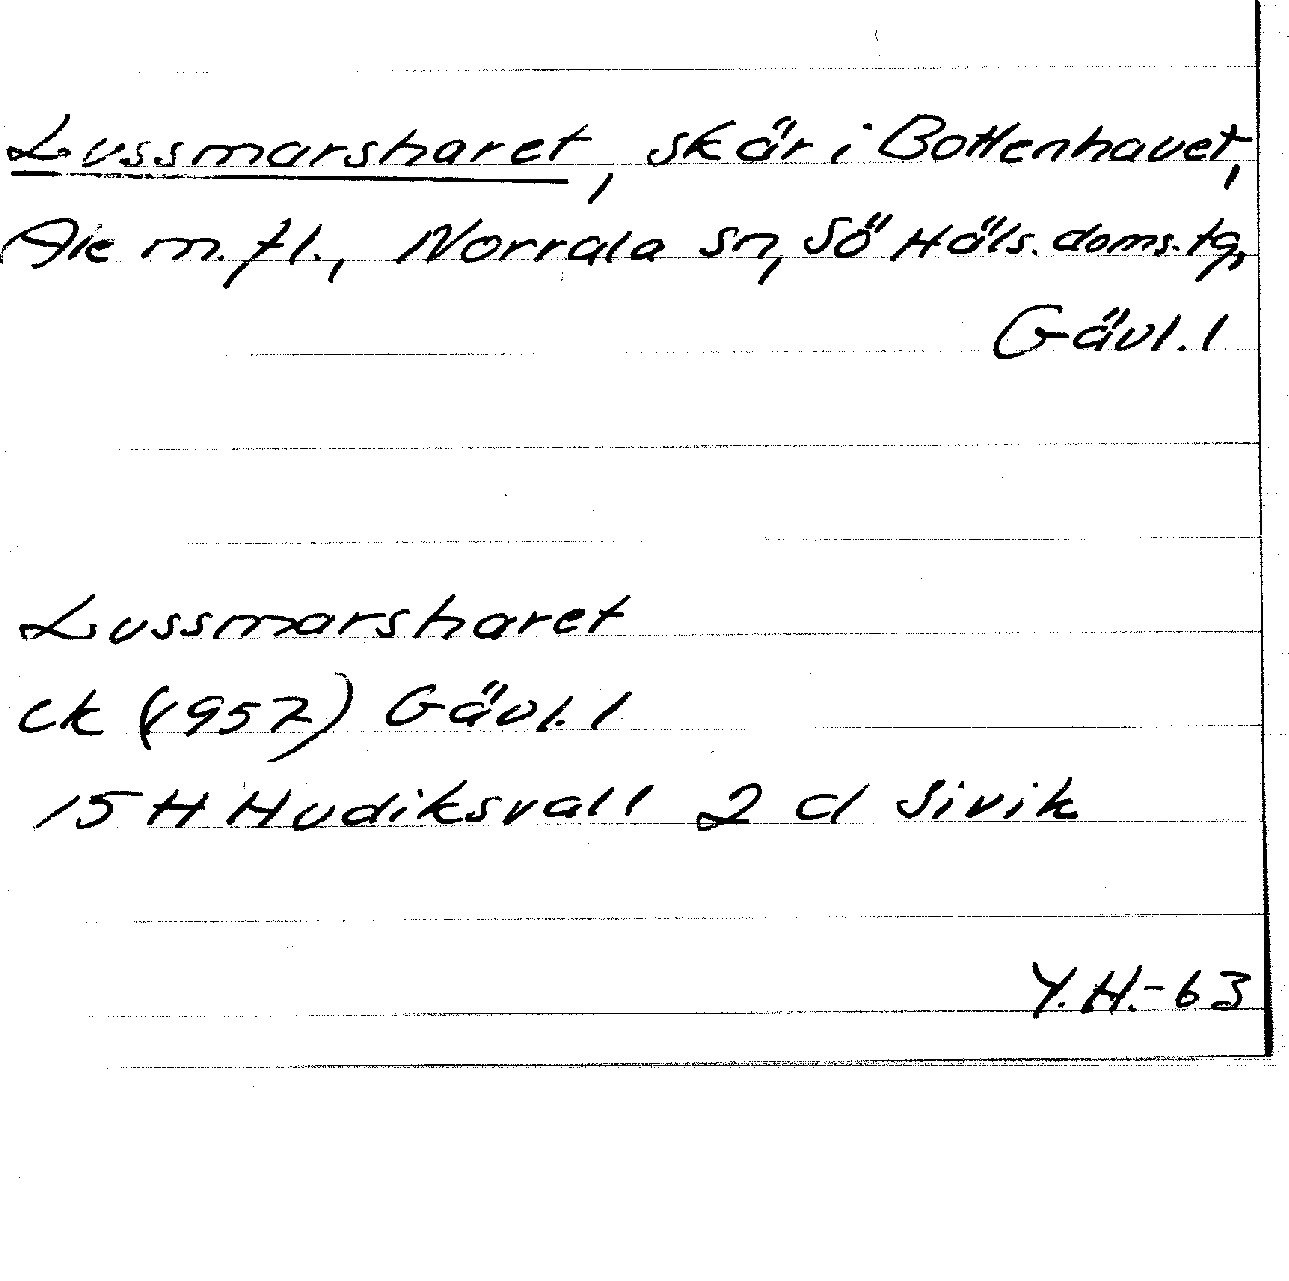 Lussmarsharet, skär i Bottenhavet,
Ale m.fl., Norrala sn, Sö Häls. doms.tg,
Gävl. l
Lussmarsharet
ek (1957) Gävl. l
15 H Hudiksvall 2 d Sivik
Y.H.-63